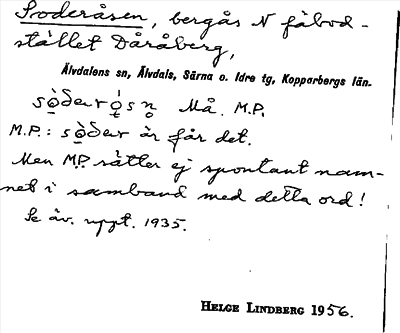 Soderåsen, bergås N fäbod-
stället Dåråberg,
Älvdalens sn, Älvdals, Särna o. Idre tg, Kopparbergs län.
sòdarǫ́sn̥ Må. M.P.
M.P.: sòdar är får det.
Men M.P. sätter ej spontant nam-
net i samband med detta ord!
Se äv. uppt. 1935.
HELGE LINDBERG 1956.